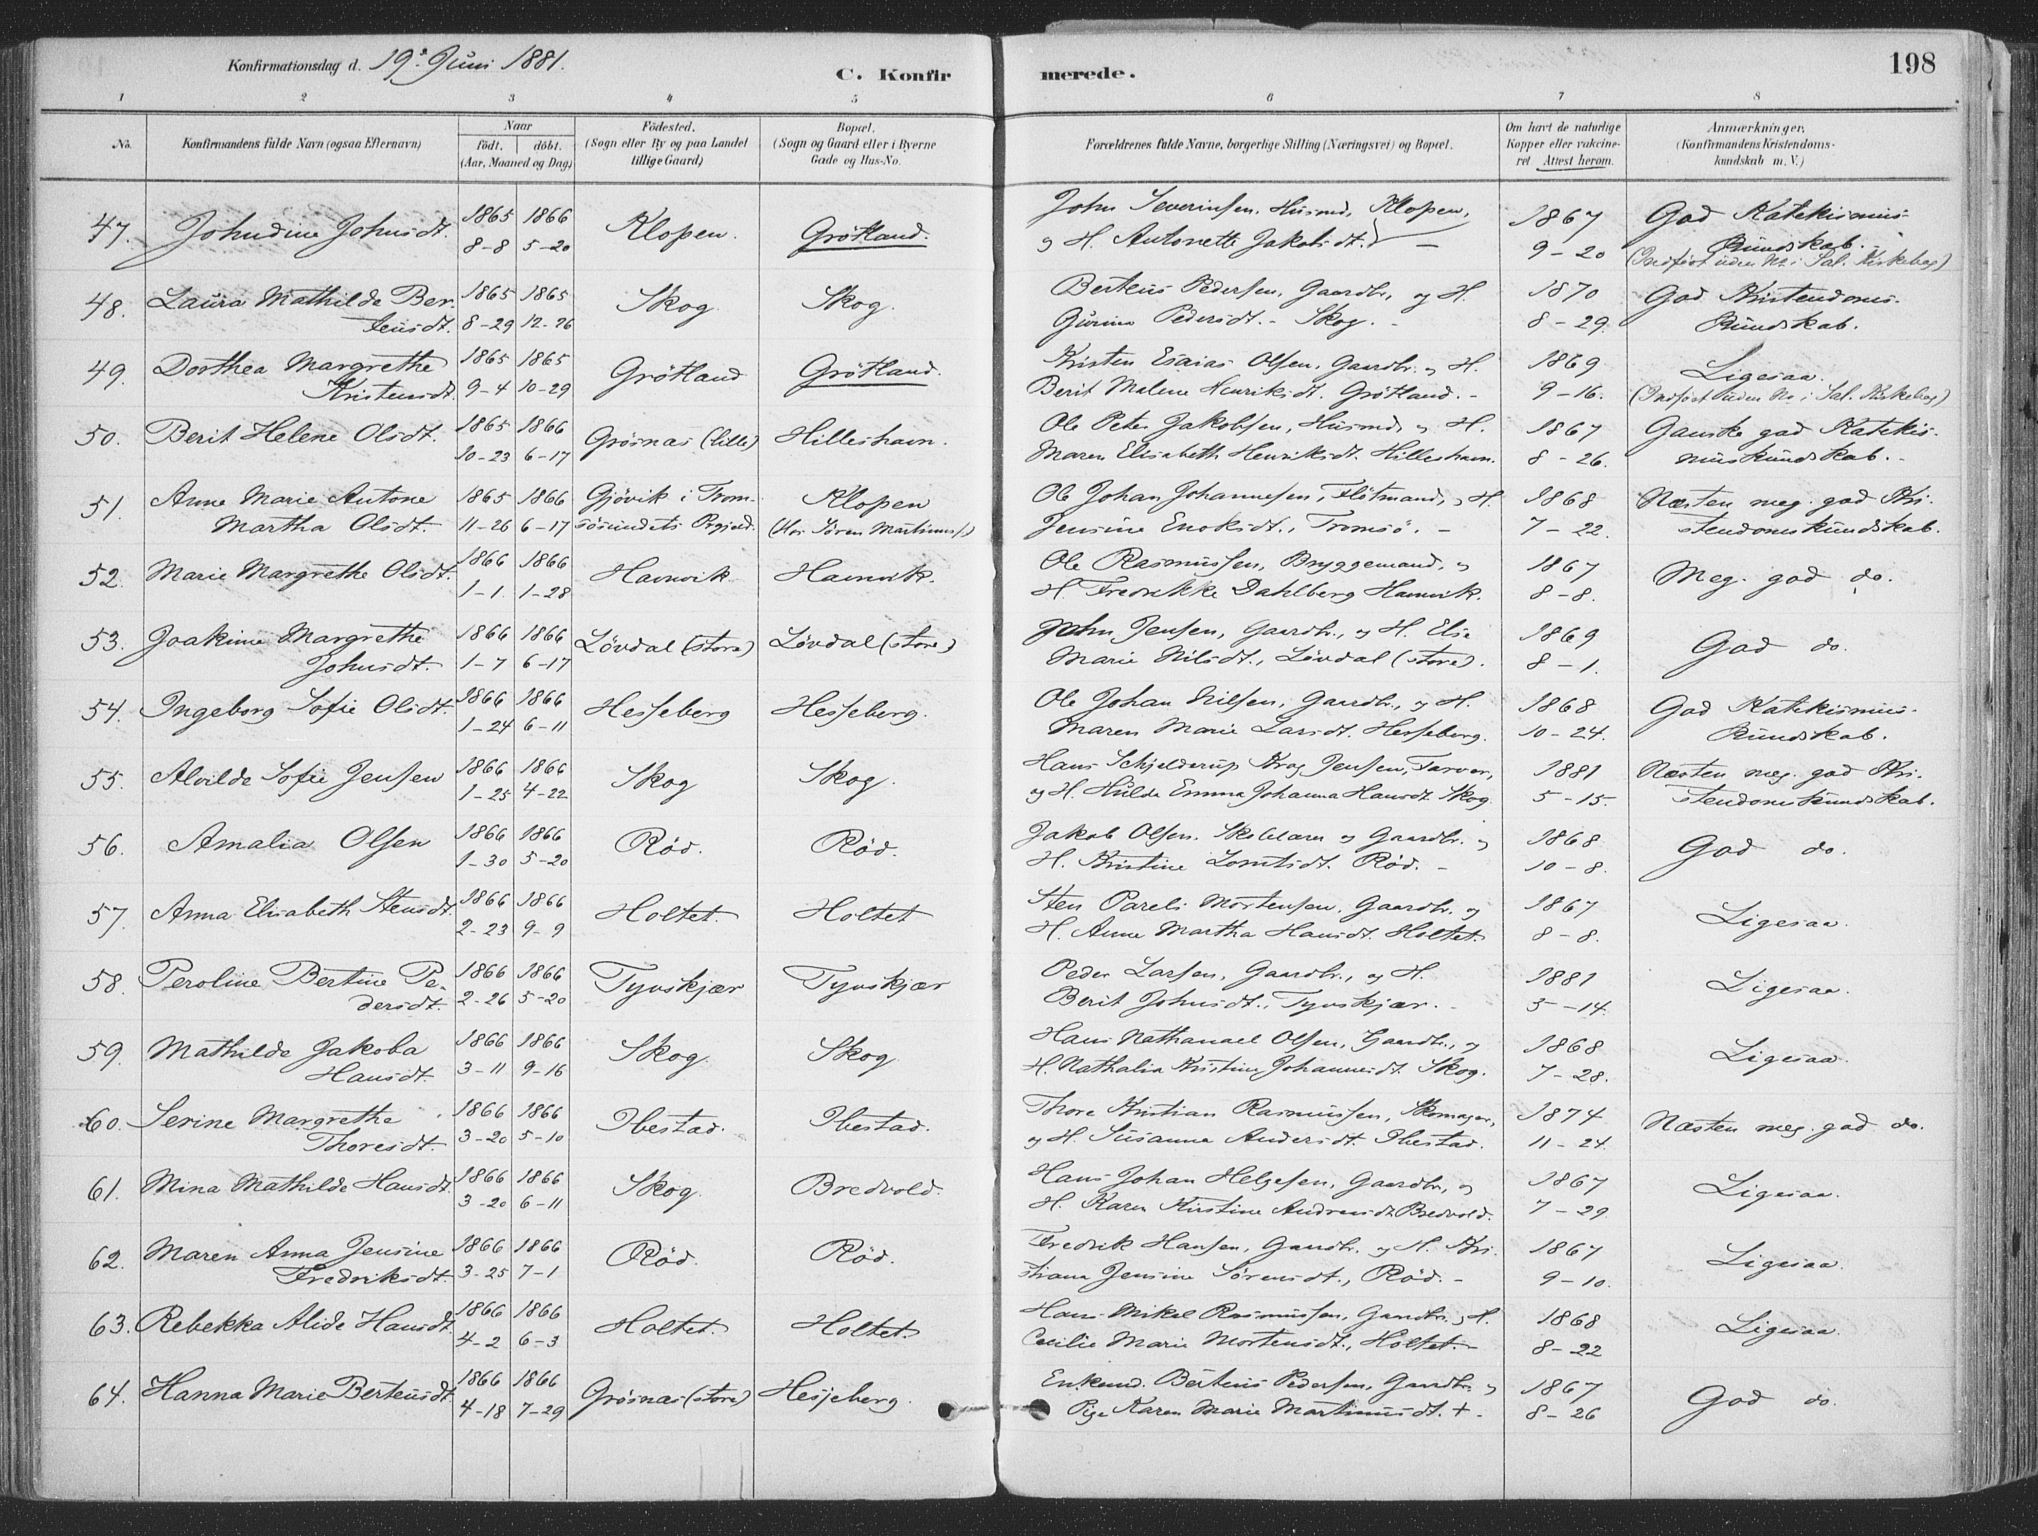 Konfirmationsdag d. 19de Juni 1881.
C. Konfirmerede.
198
1 2 3 4 5 6 7 8
No.
Konfirmandens fulde Navn (ogsaa Efternavn)
Naar
födt. döbt.
(Aar, Maaned og Dag)
Födested.
(Sogn eller By og paa Landet
tillige Gaard)
Bopæl.
(Sogn og Gaard eller i Byerne
Gade og Hus-No.
Forældrenes fulde Navne, borgerlige Stilling (Næringsvei) og Bopæl.
Om havt de naturlige
Kopper eller vakcine-
ret Attest herom.
Anmærkninger.
(Konfirmandens Kristendoms-
kundskab m. V.)
47. Johndine Johnsdt. 1865 8-8 1866 5-20 Klopen. Grötland. John Severinsen, Husmd, Klopen,
og H. Antonette Jakobsdt. - 1867 9-20 God Katekismus-
kundskab.
(Indført uden No i Sal. Kirkebog)
48. Laura Mathilde Ber-
teusdt. 1865 8-29 1865 12-26 Skog Skog. Berteus Pedersen, Gaardbr., og H.
Gurine Pedersdt. - Skog. - 1870 8-29. God Kristendoms-
kundskab.
49. Dorthea Margrethe
Kristensdt. 1865 9-4 1865 10-29 Grötland Grötland. Kristen Esaias Olsen, Gaardbr. og H.
Berit Malene Henriksdt. Grötland. - 1869 9-16. Ligesaa.
(Indført uden No i Sal. Kirkebog)
50. Berit Helene Olsdt. 1865 10-23 1866 6-17 Grösnas (lille) Hilleshavn. Ole Peter Jakobsen, Husmd, og H.
Maren Elisabeth Henriksdt. Hilleshavn. 1867 8-26. Ganske god Katekis-
muskundskab. -
51. Anne Marie Antone
Martha Olsdt. 1865 11-26 1866 6-17 Gjövik i Trom-
sösundets Prgjeld. Klopen
(Hos Sören Martinus) Ole Johan Johannesen, Flötmand, og H.
Jensine Enoksdt., Tromsö. - 1868 7-22. Næsten meg. god Kri-
stendomskundskab.
52. Marie Margrethe Olsdt. 1866 1-1. 1866 1-28 Hamnvik Hamnvik. Ole Rasmussen, Bryggemand, og
H. Fredrikke Dahlberg Hamnvik. 1867 8-8. Meg. god do.
53. Joakime Margrethe
Johnsdt. 1866 1-7 1866 6-17 Lövdal (store) Lövdal (store) John Jensen, Gaardbr., og H. Else
Marie Nilsdt., Lövdal (store). 1869 8-1. God do.
54. Ingeborg Sofie Olsdt. 1866 1-24 1866 6-11 Hesseberg Hesseberg. Ole Johan Nilsen, Gaardbr., og H.
Maren Marie Larsdt. Hesseberg. 1868 10-24. God Katekismus-
kundskab.
55. Alvilde Sofie Jensen 1866 1-25 1866 4-22 Skog Skog. Hans Schjelderup Krog Jensen, Farver,
og H. Hulde Emma Johanna Hansdt. Skog 1881 5-15. Næsten meg. god Kri-
stendomskundskab.
56. Amalia Olsen 1866 1-30 1866 5-20 Röd. Röd. Jakob Olsen, Skolelærer og Gaardbr. og
H. Kristine Lorntsdt. Röd. - 1868 10-8. God do.
57. Anna Elisabeth Stensdt. 1866 2-23 1866 9-9 Holtet. Holtet Sten Pareli Mortensen, Gaardbr. og
H. Anne Martha Hansdt. Holtet. 1867 8-8. Ligesaa.
58. Peroline Bertine Pe-
dersdt. 1866 2-26 1866 5-20 Tyvskjær Tyvskjær Peder Larsen, Gaardbr., og H.
Berit Johnsdt., Tyvskjær. - 1881 5-14. Ligesaa.
59. Mathilde Jakoba
Hansdt. 1866 3-11 1866 9-16 Skog Skog Hans Nathanael Olsen, Gaardbr., og
H. Nathalia Kristine Johannesdt. Skog. 1868 7-28. Ligesaa.
60. Serine Margrethe
Thoresdt. 1866 3-20 1866 5-10 Ibestad. Ibestad. Thore Kristian Rasmussen, Skomager,
og H. Susanna Andersdt. Ibestad. 1874 11-24. Næsten meg. god do.
61. Mina Mathilde Hansdt. 1866 3-20 1866 6-11 Skog. Bredvold. Hans Johan Helgesen, Gaardbr., og
H. Karen Kirstine Andreasdt. Bredvold. 1867 7-29. Ligesaa.
62. Maren Anna Jensine
Fredriksdt. 1866 3-25 1866 7-1 Röd. Röd. Fredrik Hansen, Gaardbr. og H. Kri-
stiana Jensine Sörensdt., Röd. - 1867 9-10. Ligesaa.
63. Rebekka Alide Hansdt. 1866 4-2 1866 6-3 Holtet. Holtet. Hans Mikal Rasmussen, Gaardbr. og H.
Cecilie Marie Mortensdt., Holtet. - 1868 8-22 Ligesaa.
64. Hanna Marie Berteusdt. 1866 4-18 1866 7-29 Grösnas (store) Hesjeberg. Enkemd. Berteus Pedersen, Gaardbr. og
Pige Karen Marie Martinusdt. + - 1867 8-26 God do.